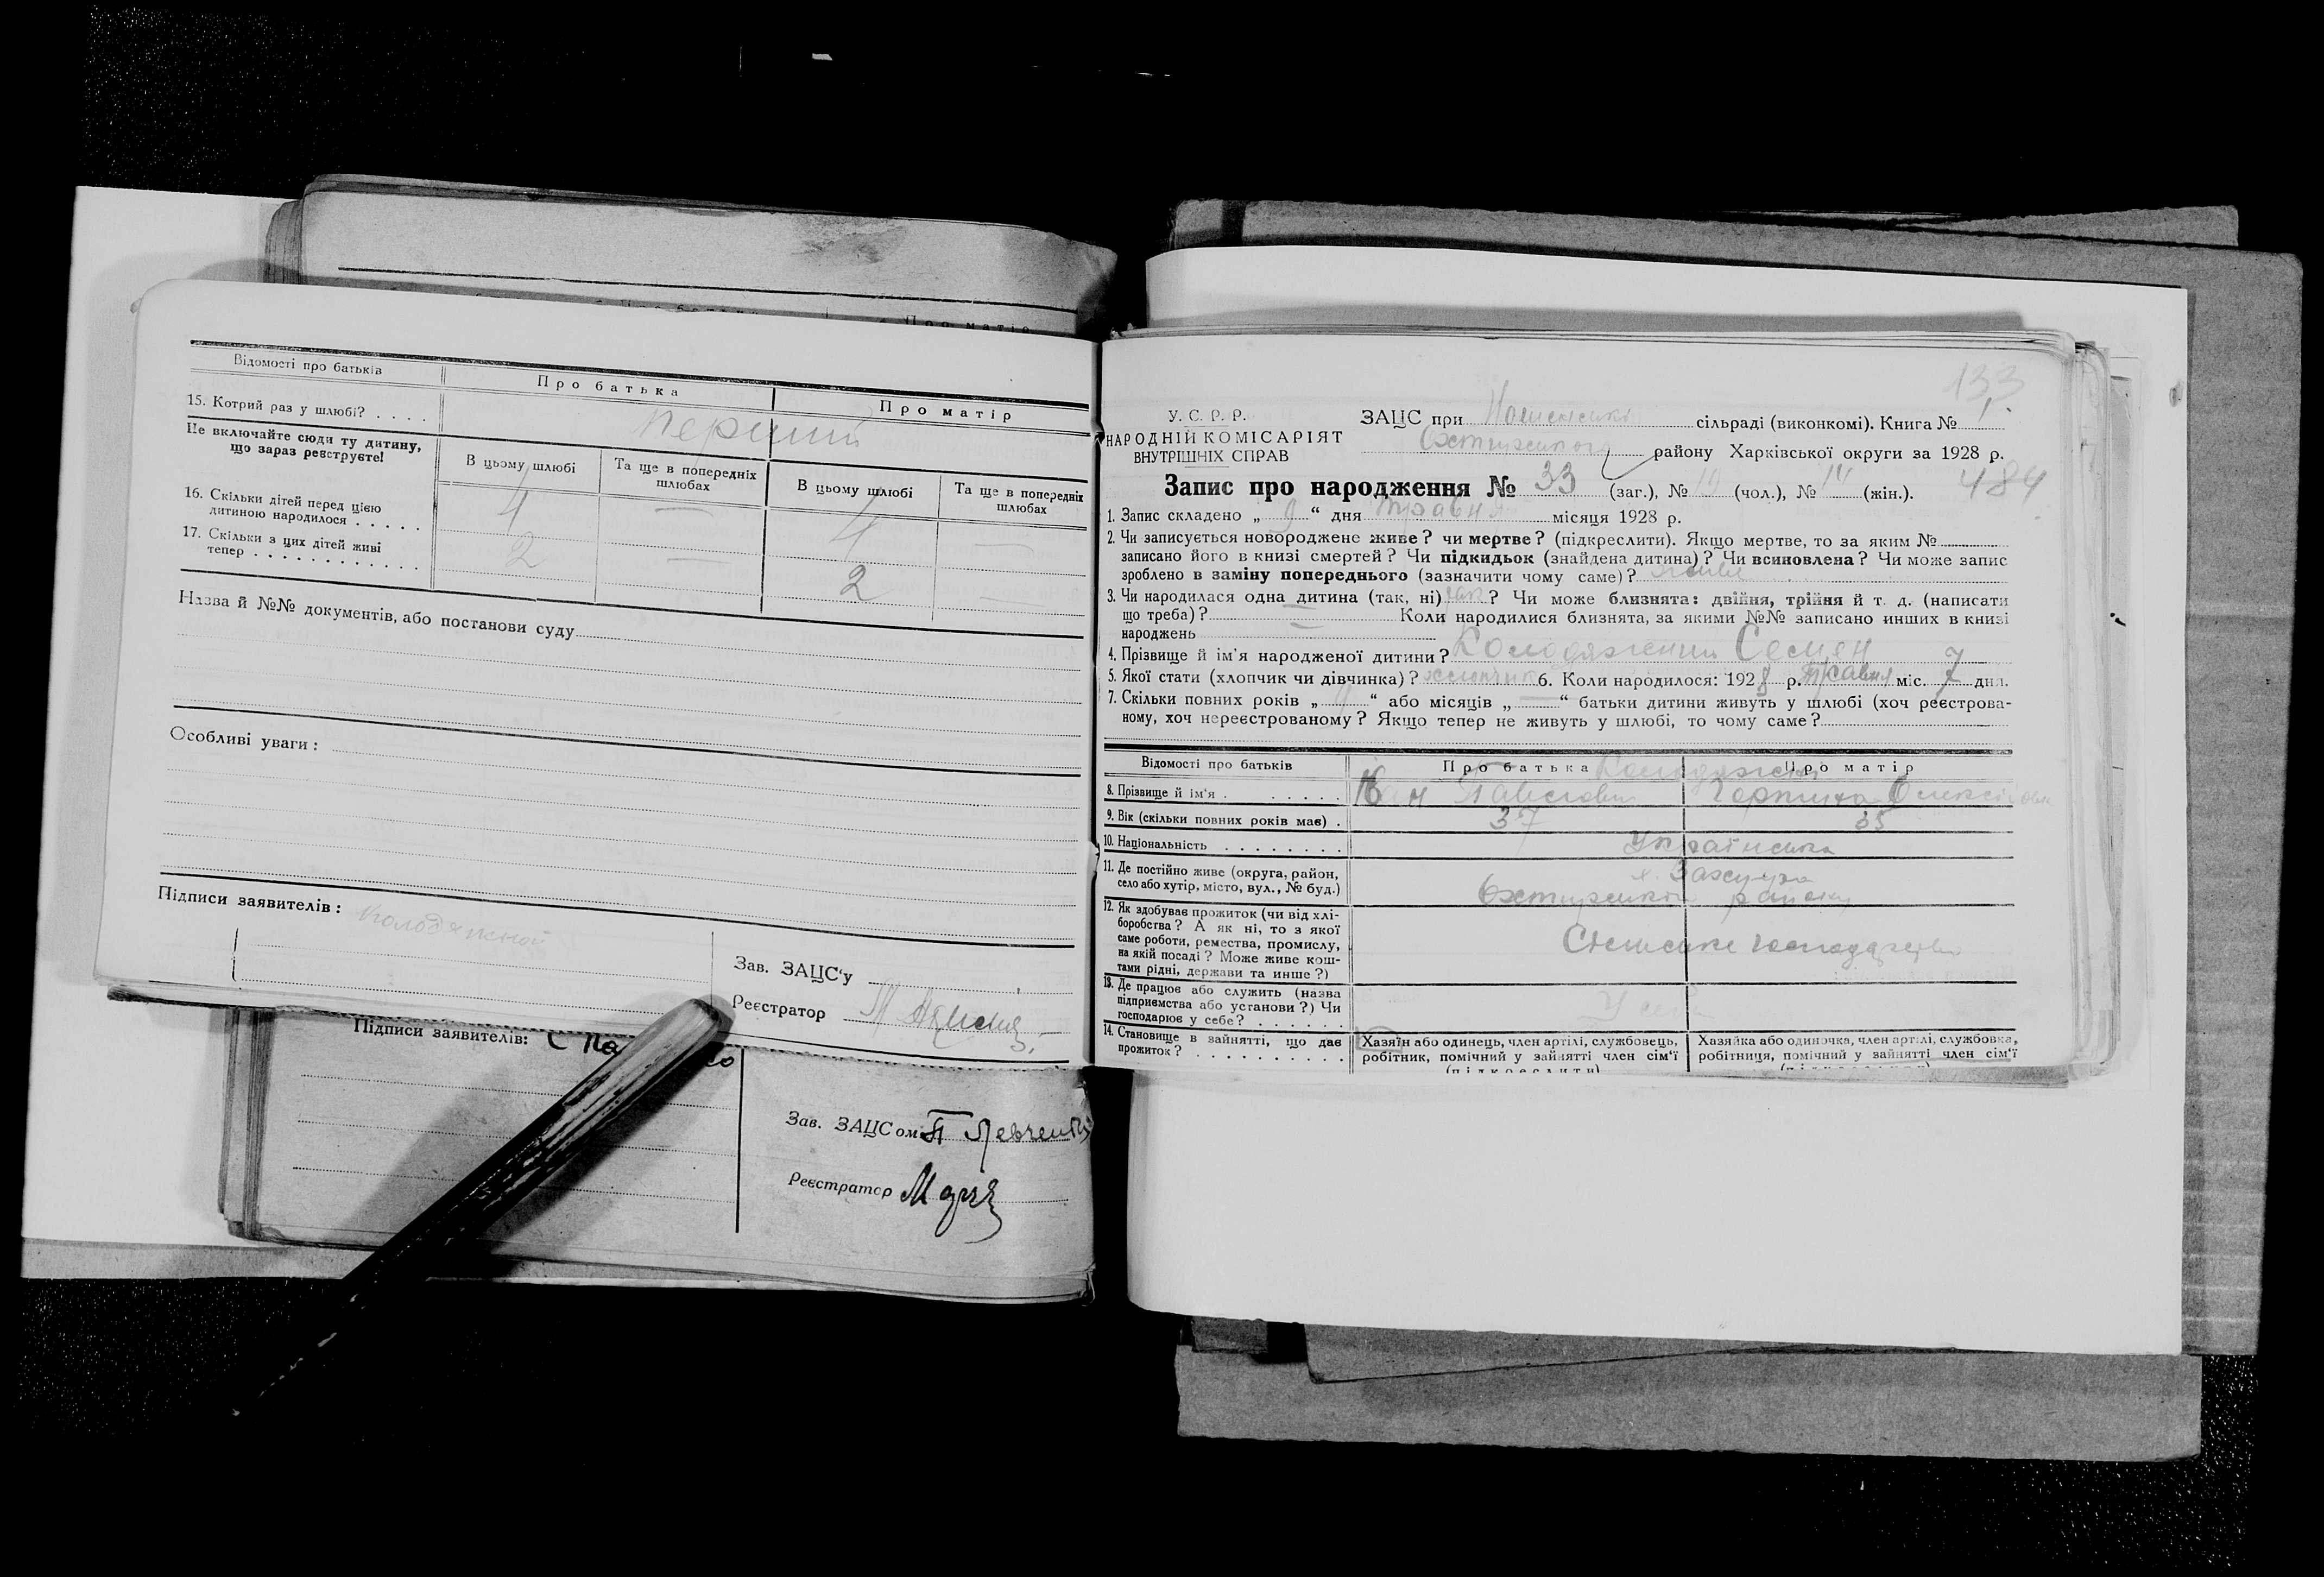 Про матір
Відомості про батьків
Про батька
Про матір
15. Котрий раз у шлюбі? . . . .
перший
Не включайте сюди ту дитину,
що зараз реєструєте!
В цьому шлюбі
Та ще в попередніх
шлюбах
В цьому шлюбі
Та ще в попередніх
шлюбах
16. Скільки дітей перед цією
дитиною народилося . . . . .
4 — 4 —
17. Скільки з цих дітей живі
тепер . . . . . . . . . . . .
2 — 2 —
Назва й №№ документів, або постанови суду
Особливі уваги:
Підписи заявителів: Колодяжной
Зав. ЗАЦС'у
Реєстратор
Підписи заявителів:
Зав. ЗАЦСом П Левченко
Реєстратор
133
У. С. Р. Р.
НАРОДНІЙ КОМІСАРІЯТ
ВНУТРІШНІХ СПРАВ
ЗАЦС при сільраді (виконкомі). Книга № 1.
Охтирського району Харківської округи за 1928 р.
Запис про народження № 33 (заг.), № 19 (чол.), № 14 (жін.). 484
1. Запис складено „ 9 “ дня травня місяця 1928 р.
2. Чи записується новороджене живе? чи мертве? (підкреслити). Якщо мертве, то за яким №
записано його в книзі смертей? Чи підкидьок (знайдена дитина)? Чи всиновлена? Чи може запис
зроблено в заміну попереднього (зазначити чому саме)? живе
3. Чи народилася одна дитина (так, ні) так? Чи може близнята: двійня, трійня й т. д. (написати
що треба)? — Коли народилися близнята, за якими №№ записано инших в книзі
народжень —
4. Прізвище й ім'я народженої дитини? Колодяжний Семен
5. Якої стати (хлопчик чи дівчинка)? хлопчик 6. Коли народилося: 1928 р. травня міс. 7 дня.
7. Скільки повних років „ “ або місяців „ — “ батьки дитини живуть у шлюбі (хоч реєстрова-
ному, хоч нереєстрованому? Якщо тепер не живуть у шлюбі, то чому саме?
Відомості про батьків
Про батька
Про матір
Колодяжні
8. Прізвище й ім'я . . . . . . .
Іван Павлович
Горпина Олексіївна
9. Вік (скільки повних років має) .
37
35
10. Національність . . . . . . . .
Українська
11. Де постійно живе (округа, район,
село або хутір, місто, вул., № буд.)
Охтирський району
12. Як здобуває прожиток (чи від хлі-
боробства? А як ні, то з якої
саме роботи, ремества, промислу,
на якій посаді? Може живе кош-
тами рідні, держави та инше?)
Сільське господарство
13. Де працює або служить (назва
підприємства або установи?) Чи
господарює у себе? . . . . . .
У себе
14. Становище в зайнятті, що дає
прожиток? . . . . . . . . . .
Хазяїн або одинець, член артілі, службовець,
робітник, помічний у зайнятті член сім'ї
(підкреслити)
Хазяйка або одиночка, член артілі, службовка,
робітниця, помічний у зайнятті член сім'ї
(підкреслити)